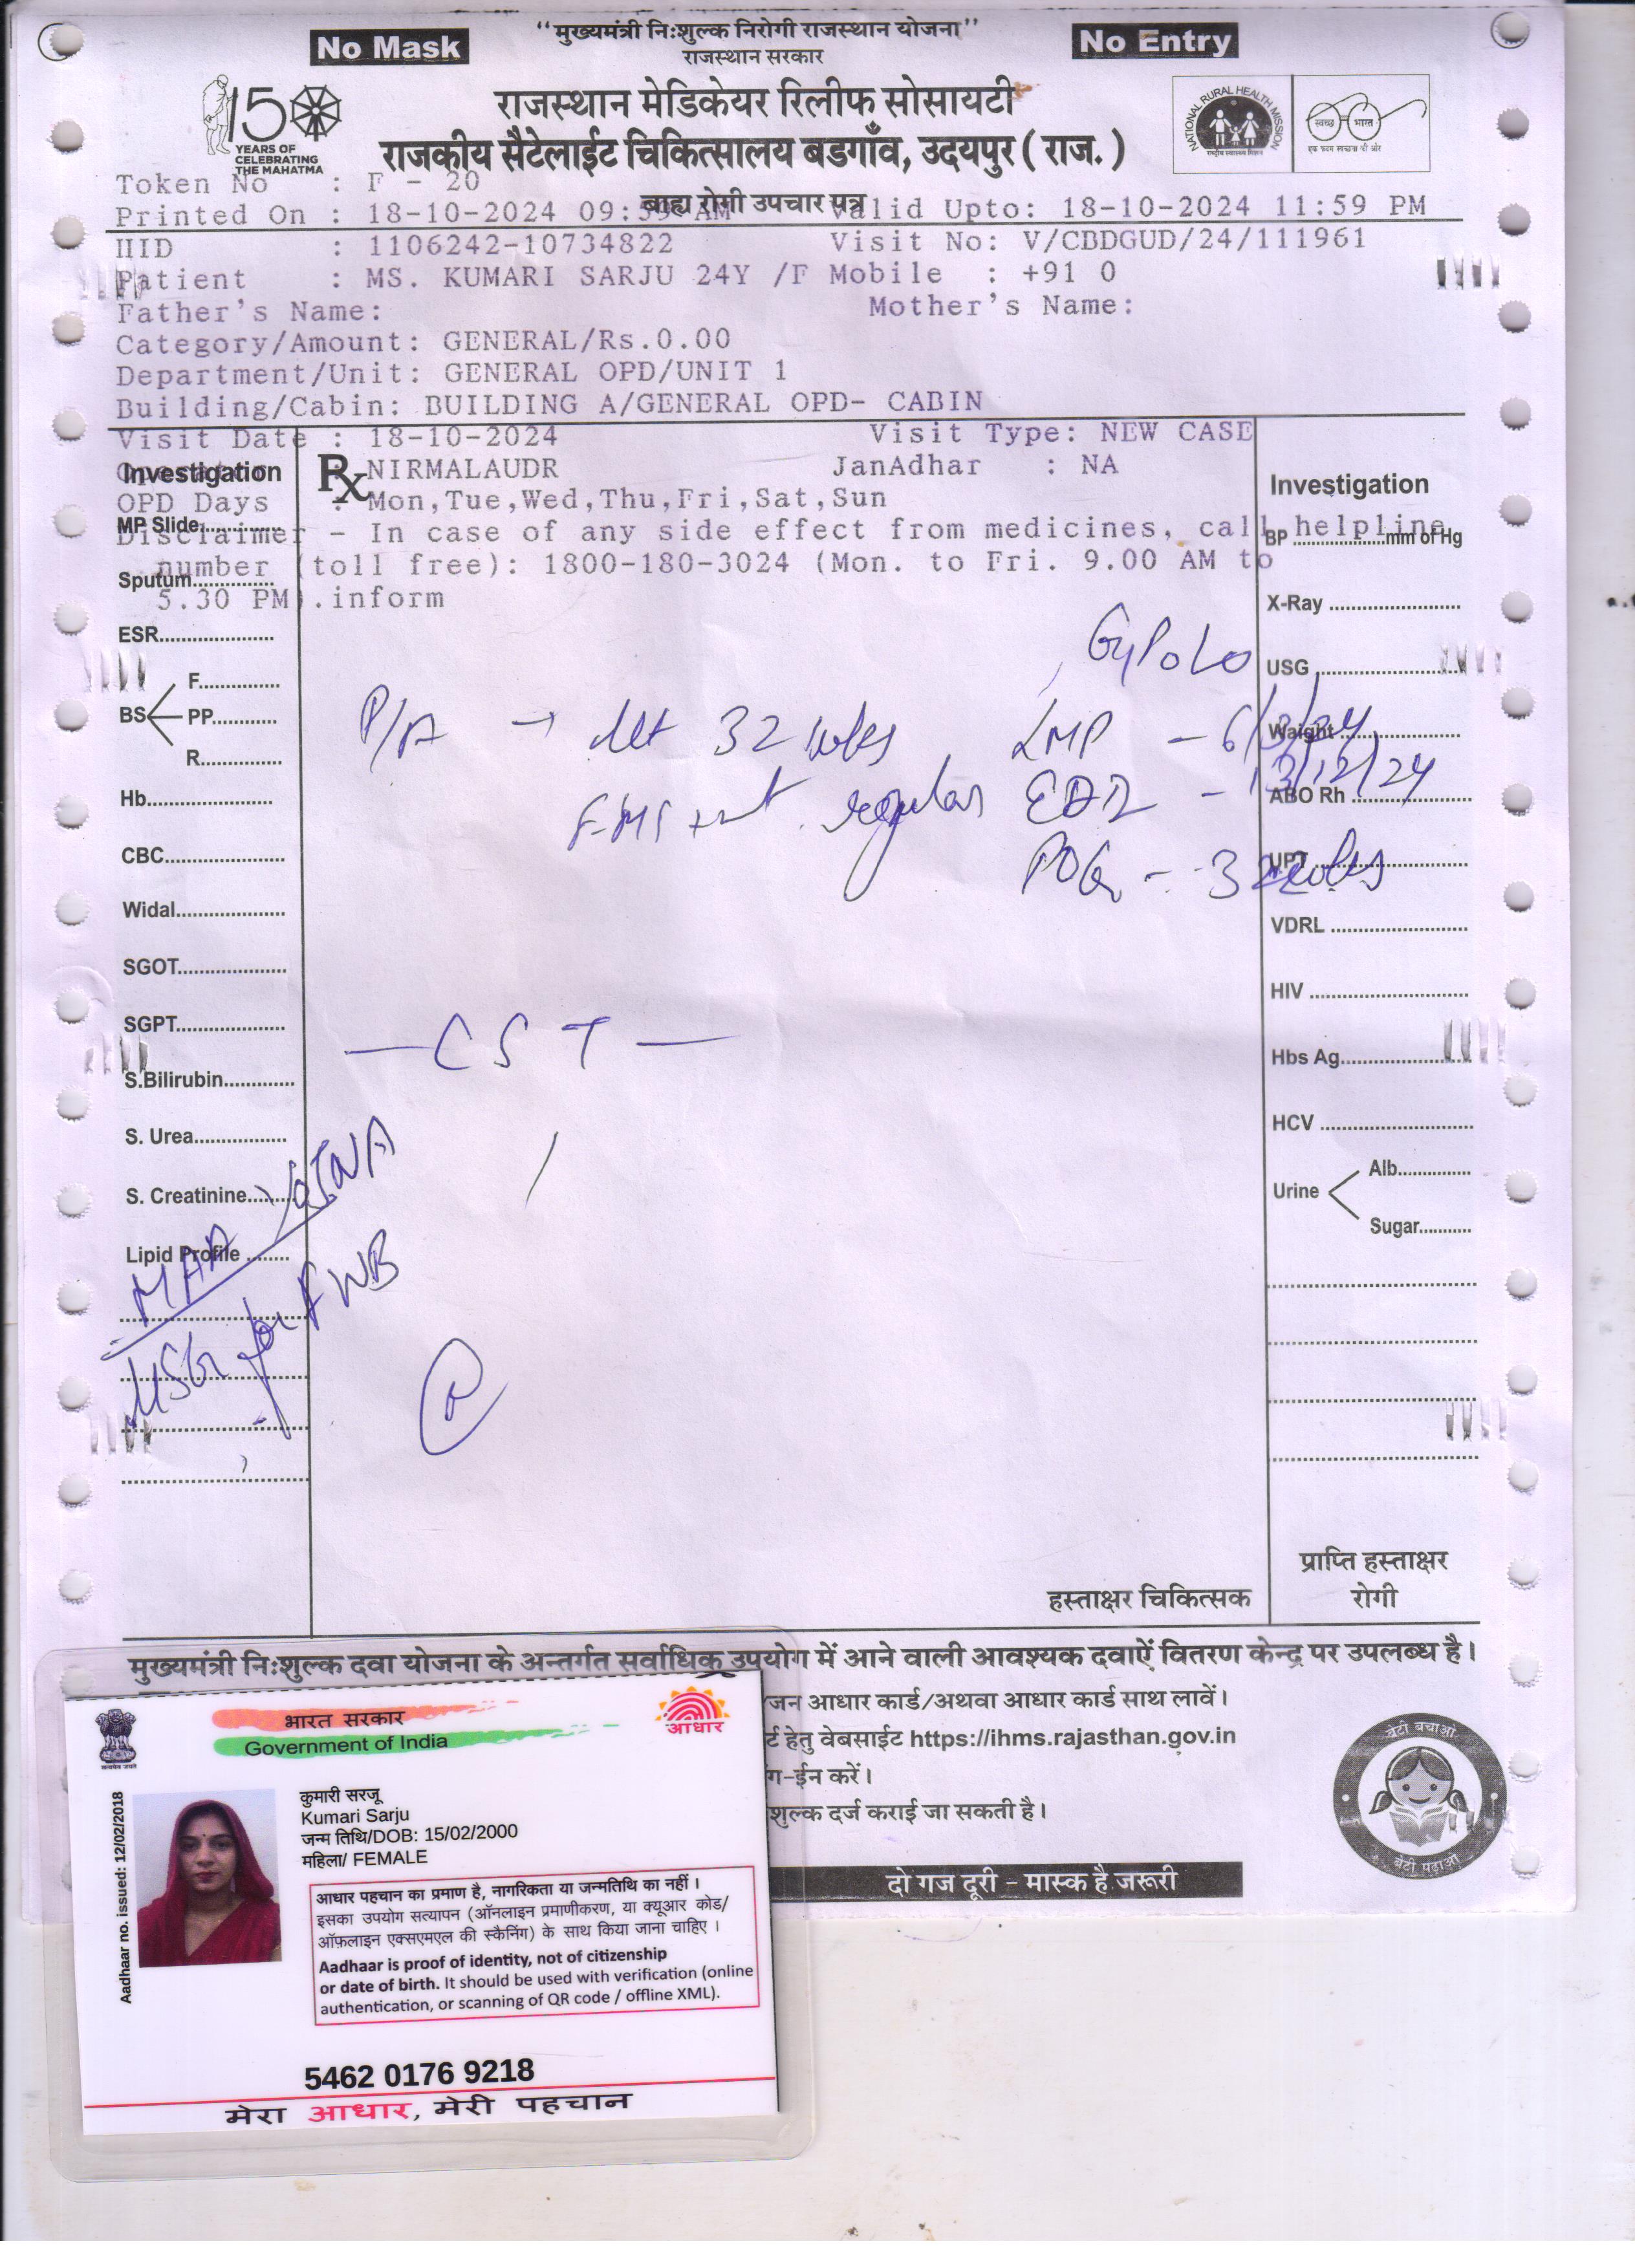 No Mask
"मुख्यमंत्री निःशुल्क निरोगी राजस्थान योजना"
No Entry
राजस्थान सरकार
150
YEARS OF
CELEBRATING
THE MAHATMA
राजस्थान मेडिकेयर रिलीफ सोसायटी
राजकीय सैटेलाईट चिकित्सालय बडगाँव, उदयपुर ( राज. )
NATIONAL RURAL HEALTH MISSION
स्वच्छ भारत
एक कदम स्वच्छता की ओर
Token No : F - 20
बाह्य रोगी उपचार पत्र
Printed On : 18-10-2024 09: AM Valid Upto: 18-10-2024 11:59 PM
HID : 1106242-10734822 Visit No: V/CBDGUD/24/111961
Patient : MS. KUMARI SARJU 24Y /F Mobile : +91 0
Father's Name: Mother's Name:
Category/Amount: GENERAL/Rs.0.00
Department/Unit: GENERAL OPD/UNIT 1
Building/Cabin: BUILDING A/GENERAL OPD- CABIN
Visit Date : 18-10-2024 Visit Type: NEW CASE
Operator : NIRMALAUDR JanAdhar : NA
OPD Days : Mon,Tue,Wed,Thu,Fri,Sat,Sun
Disclaimer - In case of any side effect from medicines, call helpline
number (toll free): 1800-180-3024 (Mon. to Fri. 9.00 AM to
5.30 PM).inform
Investigation
MP Slide
Sputum
ESR
BS F
PP
R
Hb
CBC
Widal
SGOT
SGPT
S.Bilirubin
S. Urea
S. Creatinine
Lipid Profile
MAA YOJNA
USG for FWB
Rx
P/A → 32 wks
regular
LMP - 6/3/24
EDD - 13/12/24
POG - 32 wks
- C S T -
Investigation
BP mm of Hg
X-Ray
USG
Waight
ABO Rh
UPT
VDRL
HIV
Hbs Ag
HCV
Urine Alb
Sugar
हस्ताक्षर चिकित्सक
प्राप्ति हस्ताक्षर
रोगी
मुख्यमंत्री निःशुल्क दवा योजना के अन्तर्गत सर्वाधिक उपयोग में आने वाली आवश्यक दवाऐं वितरण केन्द्र पर उपलब्ध है।
जन आधार कार्ड/अथवा आधार कार्ड साथ लावें।
हेतु वेबसाईट https://ihms.rajasthan.gov.in
ग-ईन करें।
शुल्क दर्ज कराई जा सकती है।
दो गज दूरी - मास्क है जरूरी
बेटी बचाओ
बेटी पढ़ाओ
सत्यमेव जयते
भारत सरकार
Government of India
आधार
Aadhaar no. issued: 12/02/2018
कुमारी सरजू
Kumari Sarju
जन्म तिथि/DOB: 15/02/2000
महिला/ FEMALE
आधार पहचान का प्रमाण है, नागरिकता या जन्मतिथि का नहीं ।
इसका उपयोग सत्यापन (ऑनलाइन प्रमाणीकरण, या क्यूआर कोड/
ऑफ़लाइन एक्सएमएल की स्कैनिंग) के साथ किया जाना चाहिए ।
Aadhaar is proof of identity, not of citizenship
or date of birth. It should be used with verification (online
authentication, or scanning of QR code / offline XML).
5462 0176 9218
मेरा आधार, मेरी पहचान